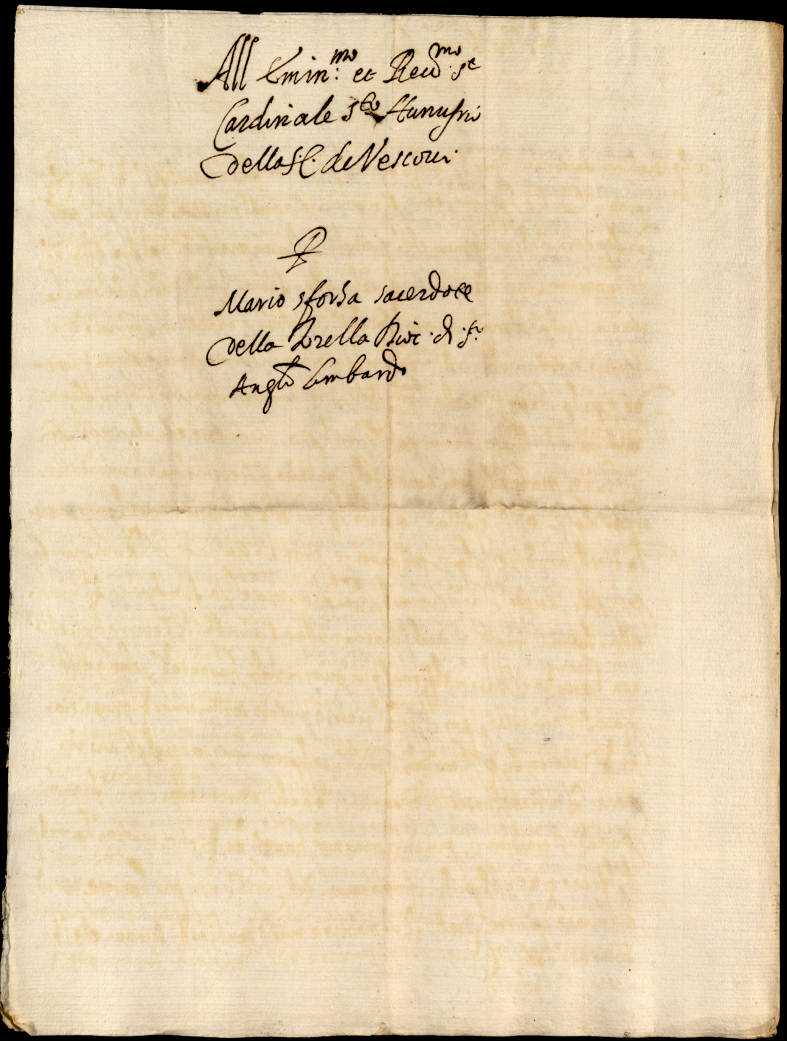 All Emin:mo et Reu.mo Sr
Cardinale Sto Hunufrio
della S.C. de Vescoui.
P
Mario sforsa sacerdote
della Torella Dioc. di St
Anglo Lombardo